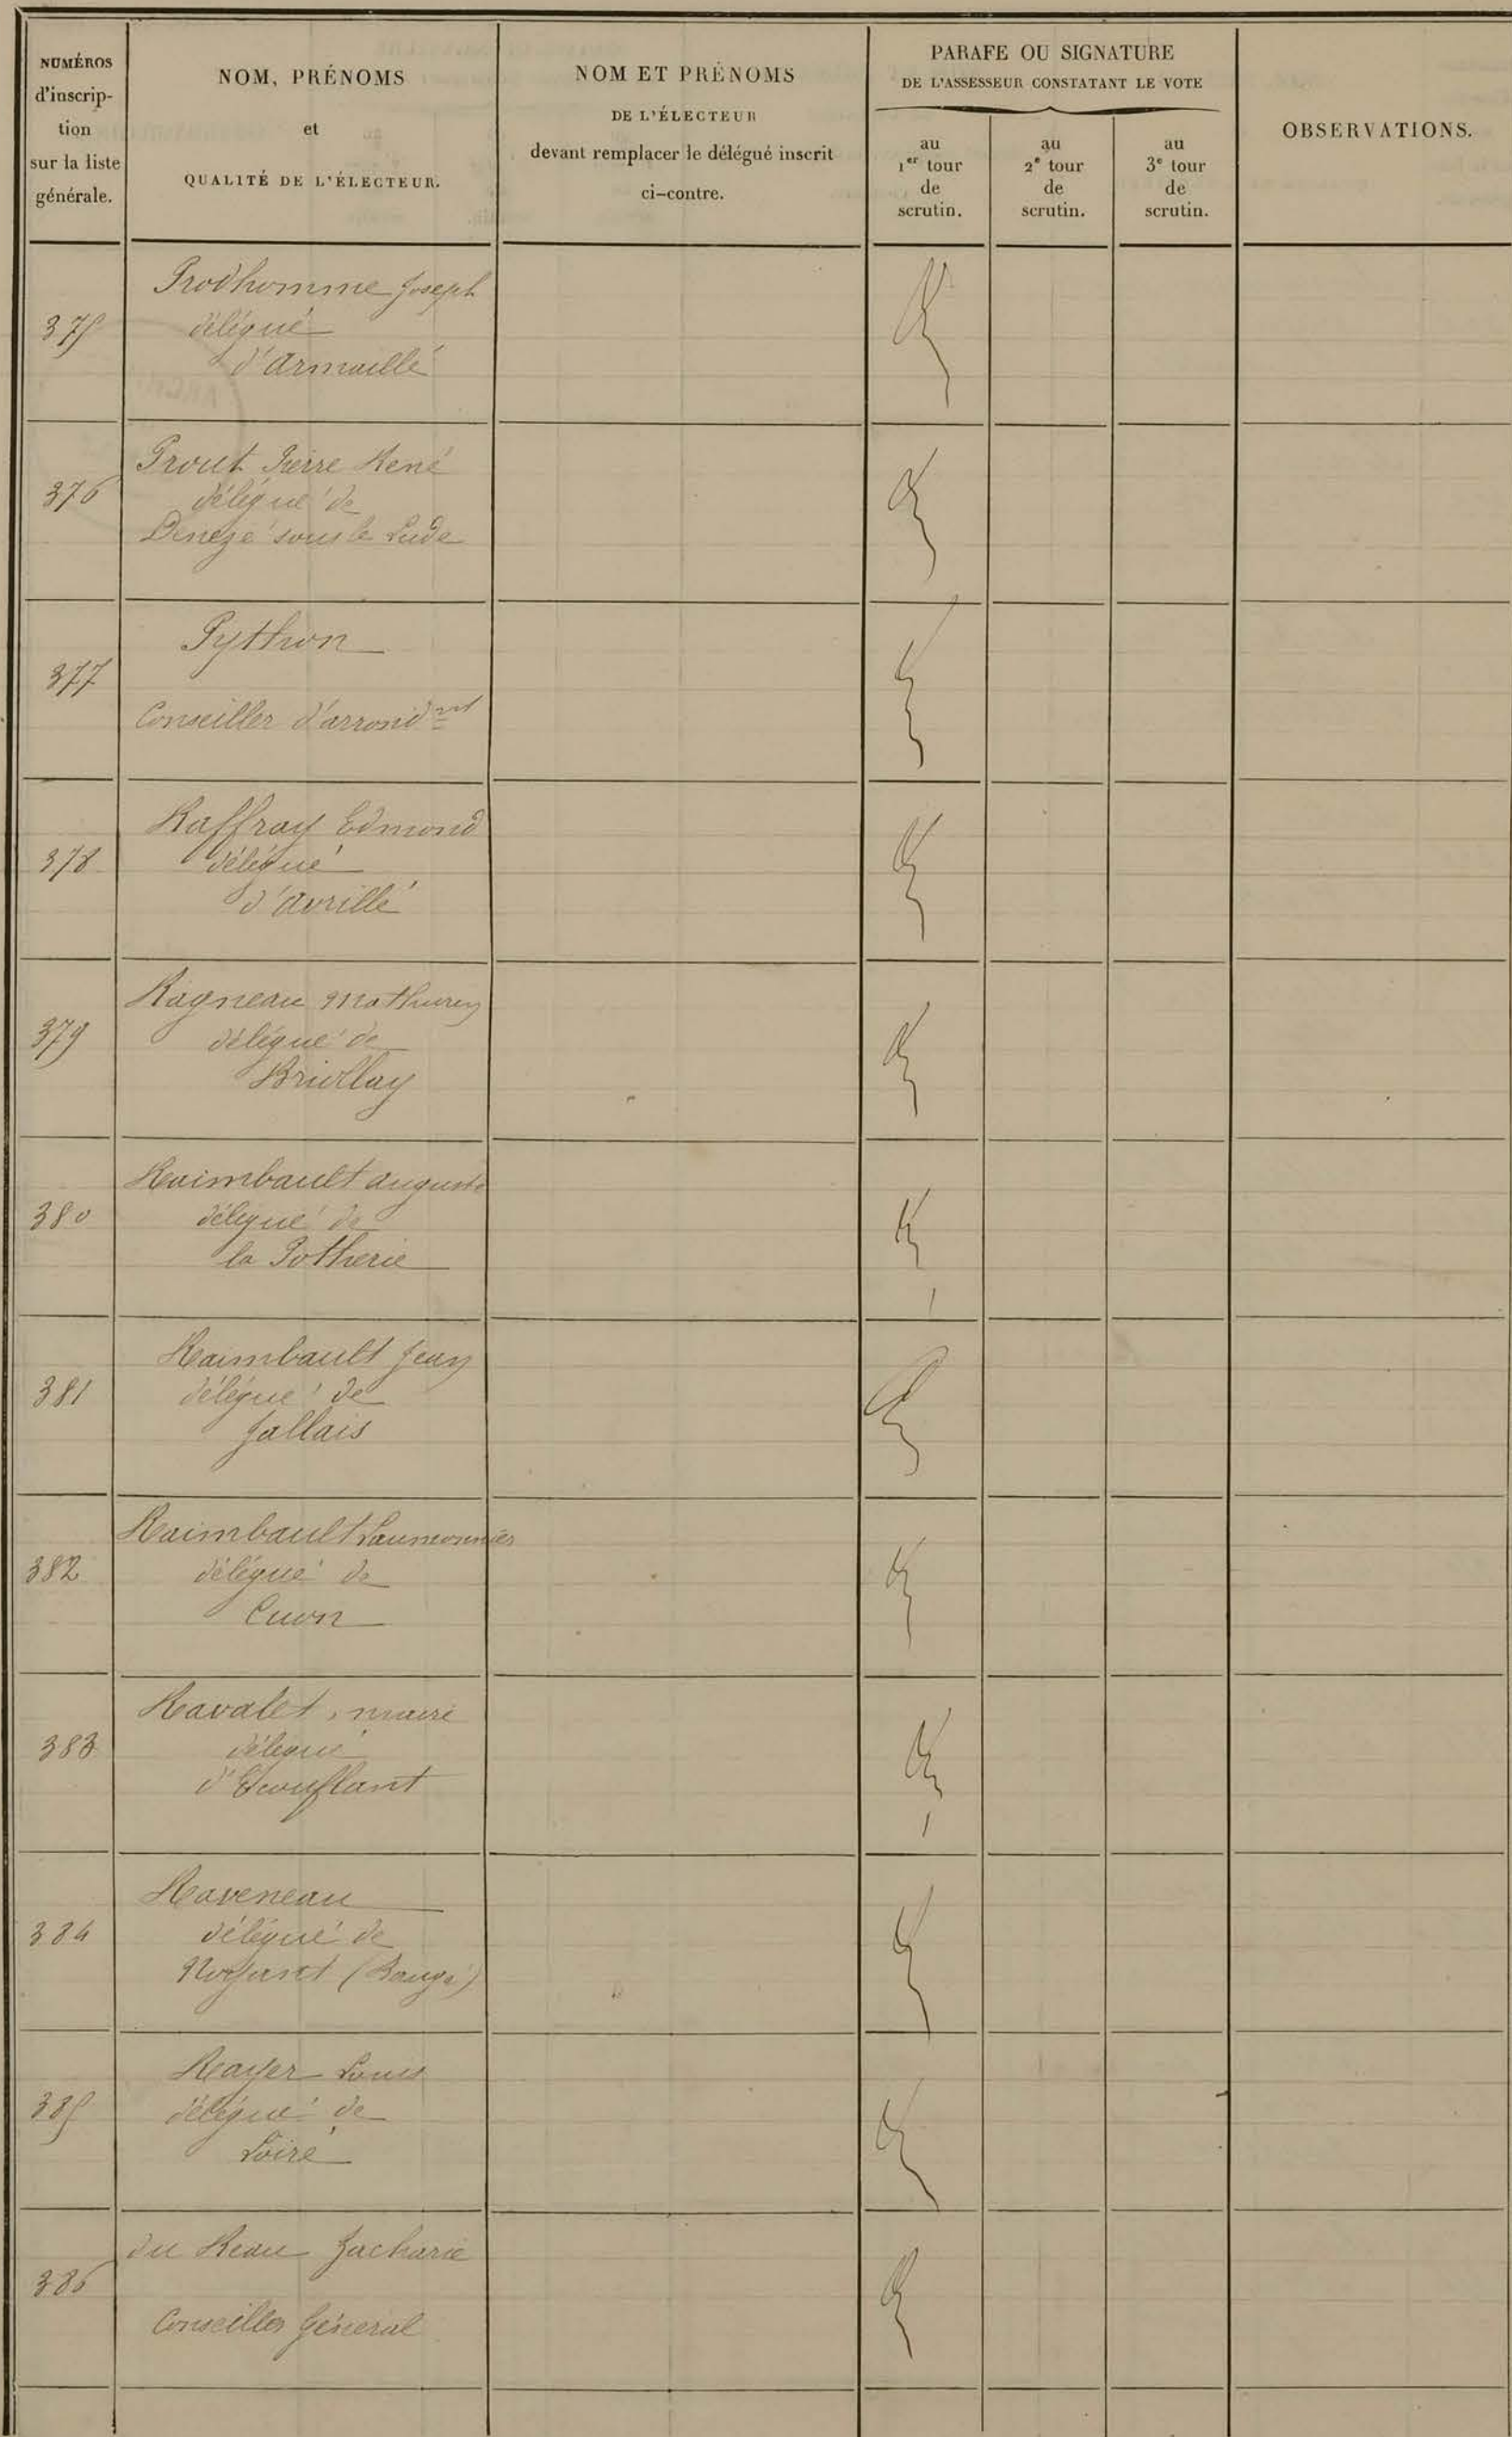 NUMÉROS
d'inscrip-
tion
sur la liste
générale.
NOM, PRÉNOMS
et
QUALITÉ DE L'ÉLECTEUR.
NOM ET PRÉNOMS
DE L'ÉLECTEUR
devant remplacer le délégué inscrit
ci-contre.
PARAFE OU SIGNATURE
DE L'ASSESSEUR CONSTATANT LE VOTE
au
1er tour
de
scrutin.
au
2e tour
de
scrutin.
au
3e tour
de
scrutin.
OBSERVATIONS.
375
Prodhomme Joseph
délégué
d'Armaillé
376
Prout Pierre René
délégué de
Denezé sous le Lude
377
Python
Conseiller d'arrondmt
378
Raffray Edmond
délégué
d'Avrillé
379
Ragneau Mathurin
délégué de
Briollay
380
Raimbault Auguste
délégué de
la Potherie
381
Raimbault Jean
délégué de
Jallais
382
Raimbault Laumonnier
délégué de
Cuon
383
Ravalet, maire
délégué
d'Ecouflant
384
Raveneau
délégué de
Noyant (Baugé)
385
Rayer Louis
délégué de
Loiré
386
du Reau Zacharie
Conseiller Général